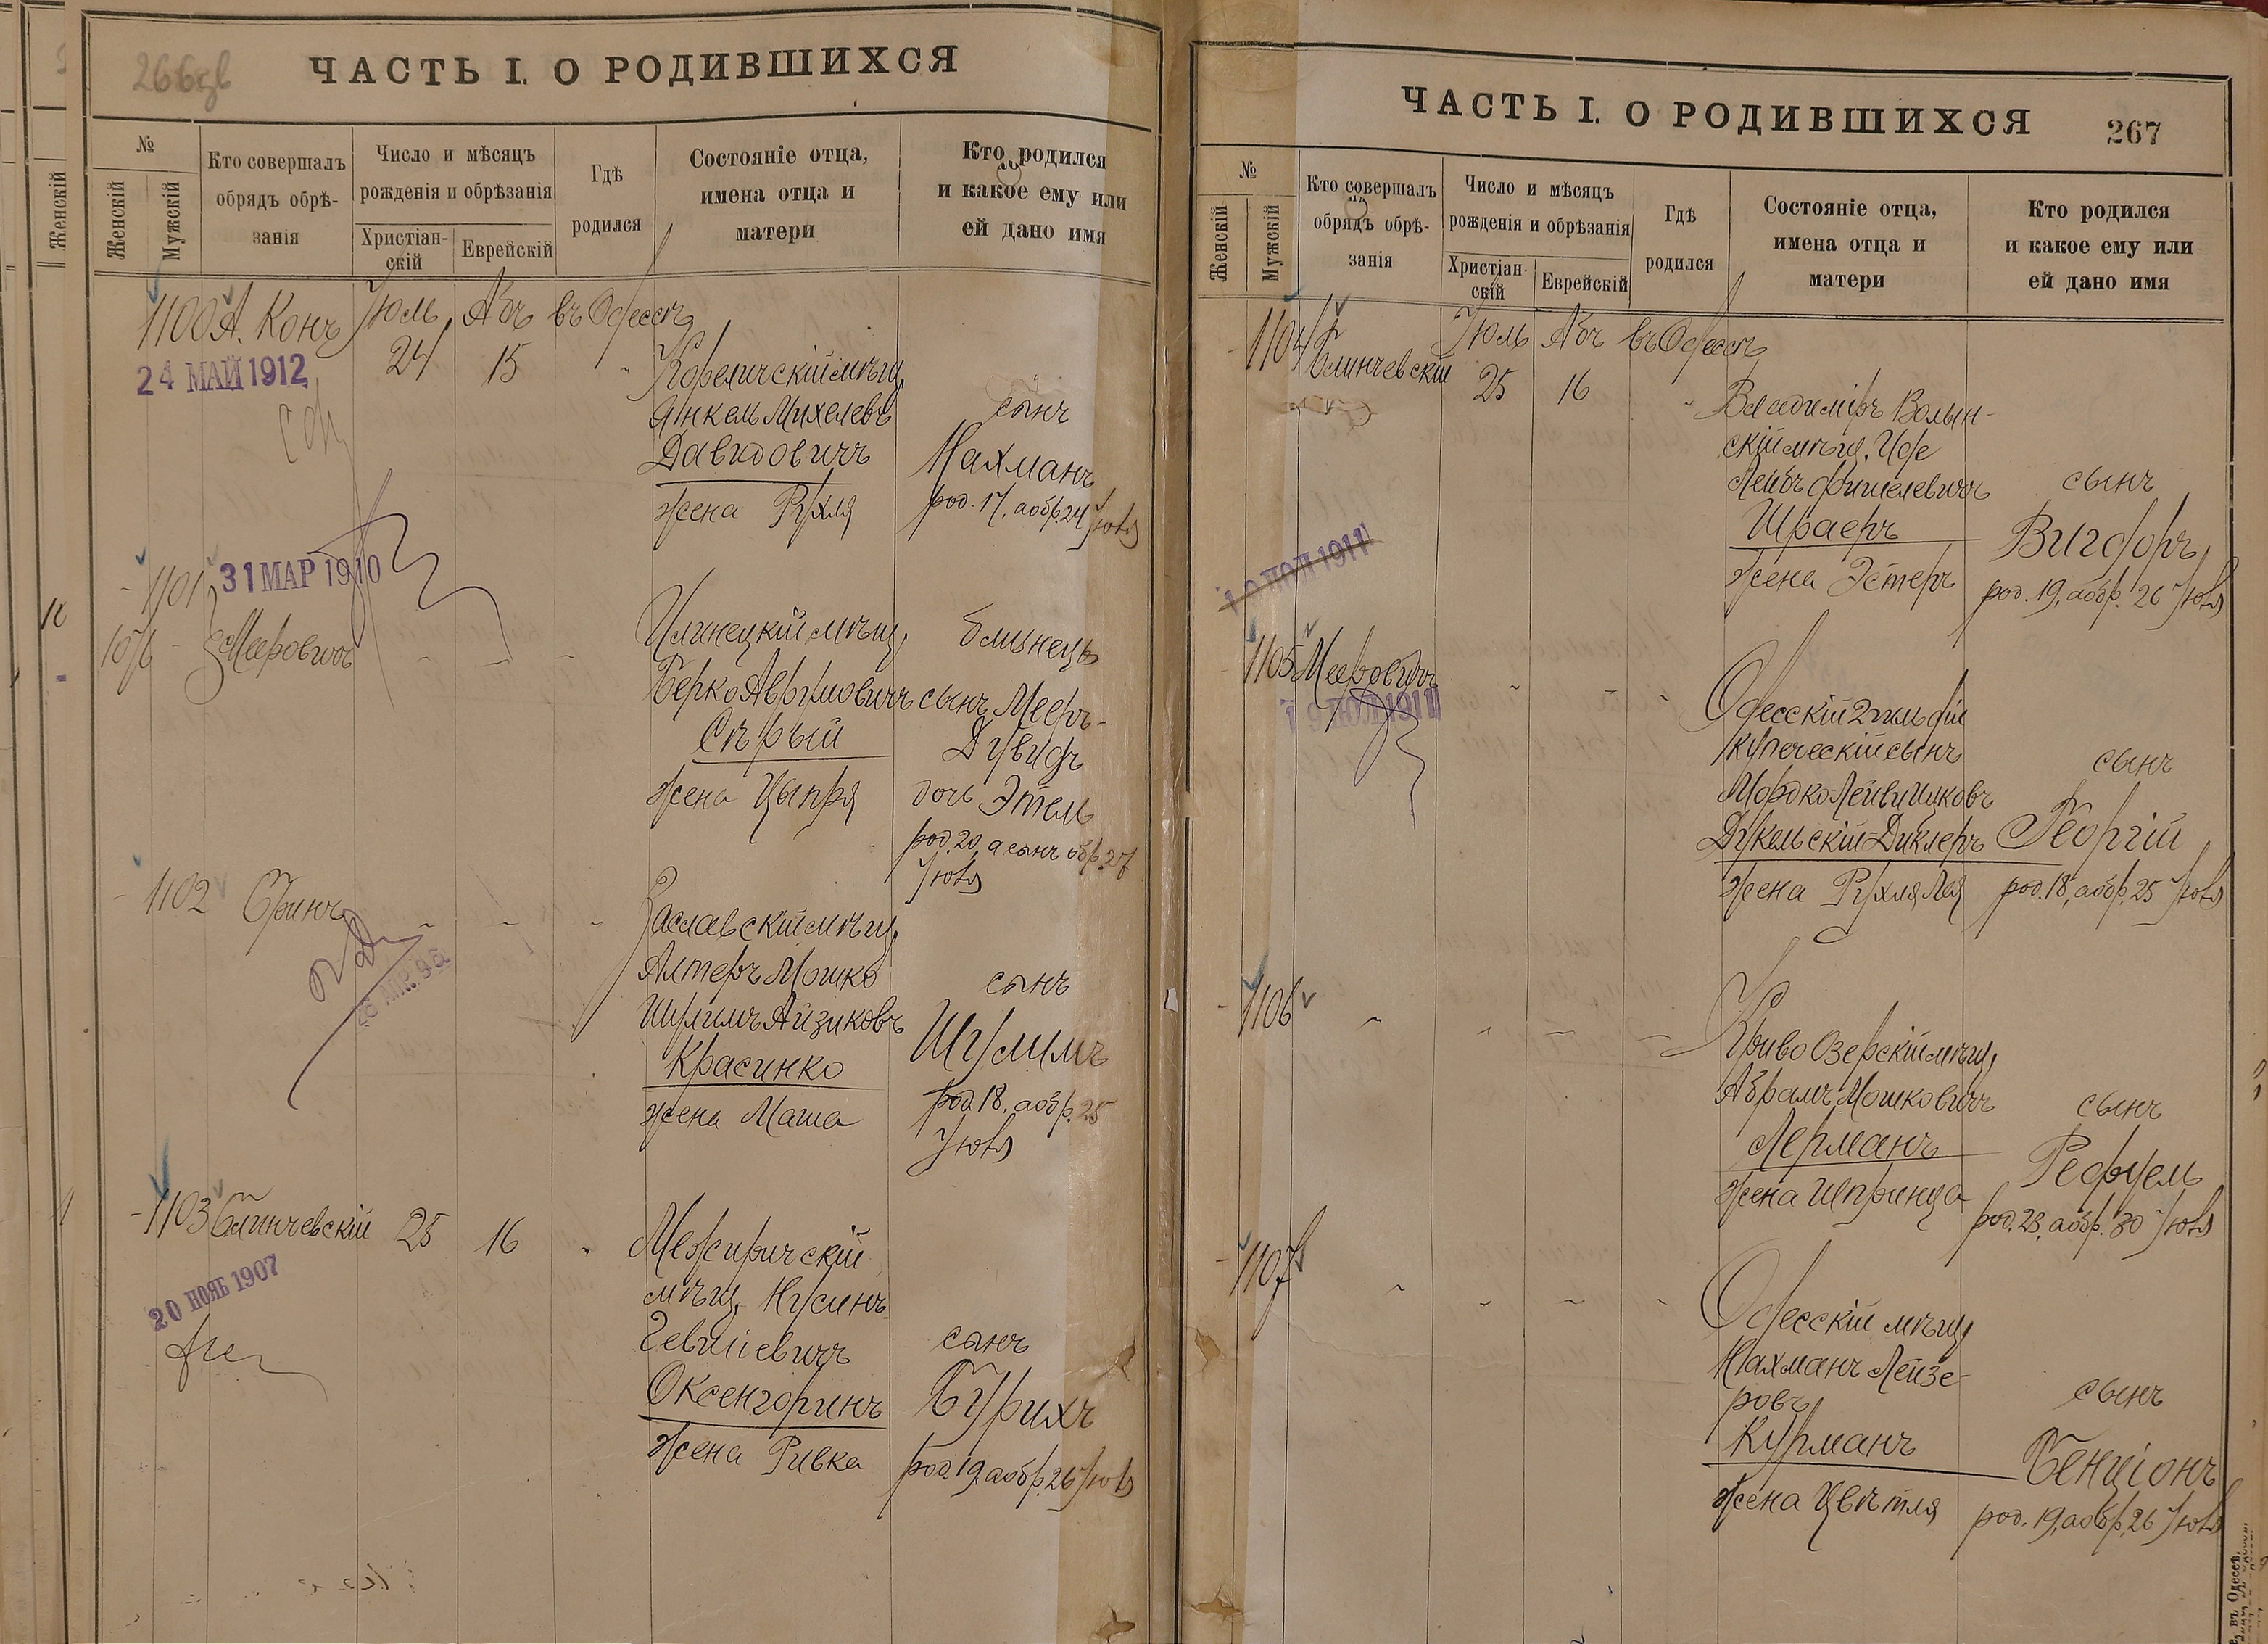 266
ЧАСТЬ I. О РОДИВШИХСЯ
№
Женскій
Мужскій
Кто совершалъ
обрядъ обрѣ-
занія
Число и мѣсяцъ
рожденія и обрѣзанія
Христіан-
скій
Еврейскій
Гдѣ
родился
Состояніе отца,
имена отца и
матери
Кто родился
и какое ему или
ей дано имя
1100 А. Конъ Іюль 24 Абъ 15 въ Одессѣ
24 МАЙ 1912
Кореличскій мѣщ.
Янкель Михелевъ
Давидовичъ
жена Рухля
сынъ
Нахманъ
род. 17, а обр. 24 Іюля
1101
31 МАР 1910
1076 Меровичъ
Илинецкій мѣщ.
Берко Аврумовичъ
Сѣрый
жена Ципра
близнецы
сынъ Мееръ-
Дувидъ
дочь Этель
род. 20, а сынъ обр. 27
Іюля
1102 Гринъ
Заславскій мѣщ.
Алтеръ Мошко
Шулимъ Айзиковъ
Красинко
жена Маша
сынъ
Шулимъ
род. 18, а обр. 25
Іюля
1103 Блинчевскій 25 16
20 НОЯБ 1907
Межиричскій
мѣщ. Нусинъ
Гевшіевичъ
Оксенгоринъ
жена Ривка
сынъ
Бурихъ
род. 19, а обр. 26 Іюля
ЧАСТЬ I. О РОДИВШИХСЯ
267
№
Женскій
Мужскій
Кто совершалъ
обрядъ обрѣ-
занія
Число и мѣсяцъ
рожденія и обрѣзанія
Христіан-
скій
Еврейскій
Гдѣ
родился
Состояніе отца,
имена отца и
матери
Кто родился
и какое ему или
ей дано имя
1104 Блинчевскій Іюль 25 Абъ 16 въ Одессѣ
Владиміръ Волын-
скій мѣщ. Иде
Лейбъ Фишелевичъ
Шраеръ
жена Эстеръ
сынъ
Вигдоръ
род. 19, а обр. 26 Іюля
1105 Меровичъ
1911
Одесскій 2 гильдіи
купеческій сынъ
Мордко Лейви Ицковъ
Дукельскій-Диклеръ
жена Рухля Лея
сынъ
Георгій
род. 18, а обр. 25 Іюля
1106
Криво Озерскій мѣщ.
Абрамъ Мошковичъ
Лерманъ
жена Шпринца
сынъ
Рефуель
род. 23, а обр. 30 Іюля
1107
Одесскій мѣщ.
Нахманъ Лейзе-
ровъ
Курманъ
жена Цвѣтля
сынъ
Бенціонъ
род. 19, а обр. 26 Іюля
въ Одессѣ.